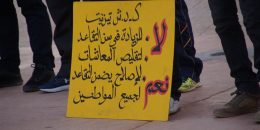 ك.د.ش تيزنيت
لا للزيادة في سن التقاعد
لا لتقليص المعاشات
نعم للإصلاح يضمن التقاعد
لجميع المواطنين